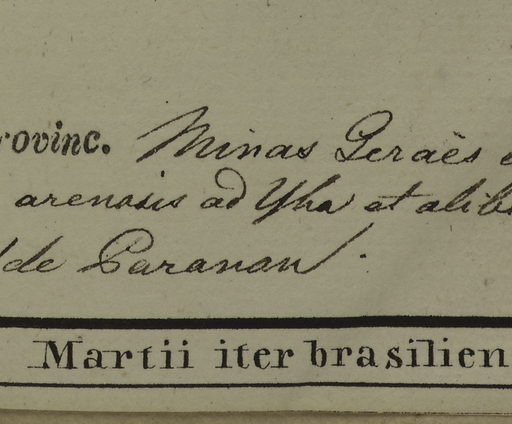 rovinc. Minas Geraës e
arenosis ad Yha et alib
de Paranan.
Martii iter brasilien